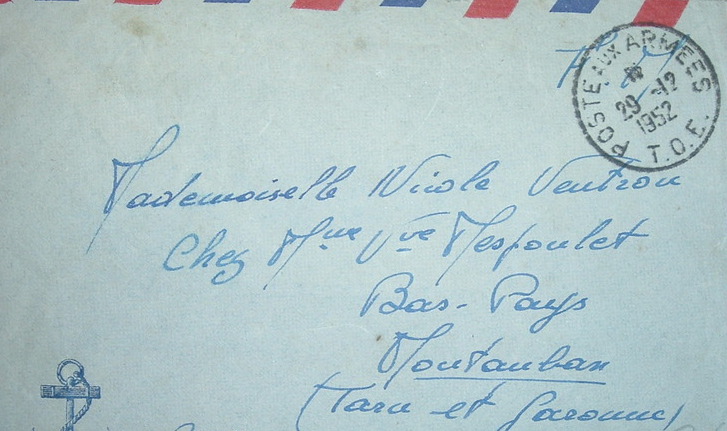 F M
POSTE AUX ARMEES
29 -12
1952
T.O.E.
Mademoiselle Nicole Ventron
Chez Mme Vve Mespoulet
Bas-Pays
Montauban
(Tarn et Garonne)